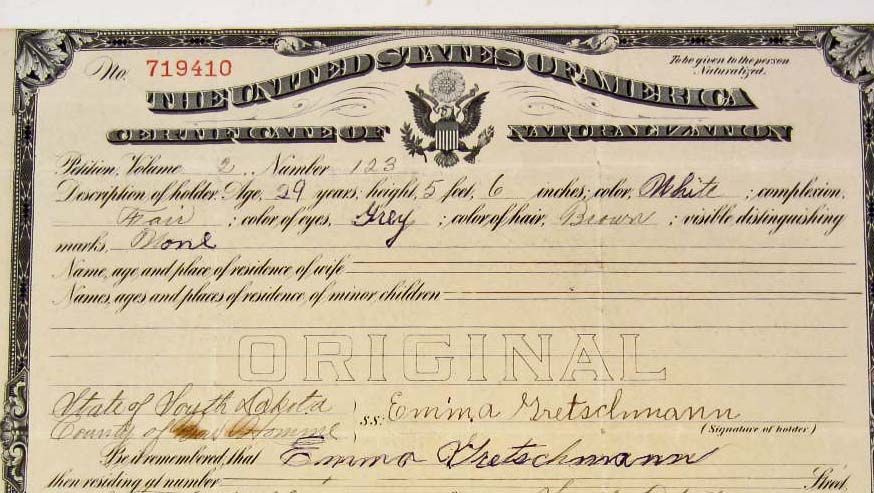 No. 719410
To be given to the person
Naturalized.
THE UNITED STATES OF AMERICA
CERTIFICATE OF NATURALIZATION
Petition, Volume 2 Number 123
Description of holder: Age, 29 years; height, 5 feet, 6 inches; color, White; complexion,
Fair; color of eyes, Grey; color of hair, Brown; visible distinguishing
marks, None
Name, age and place of residence of wife
Names, ages and places of residence of minor children
ORIGINAL
State of South Dakota
County of Bon Homme
s.s. Emma Gretschmann
(Signature of holder)
Be it remembered, that Emma Gretschmann
then residing at number Street,